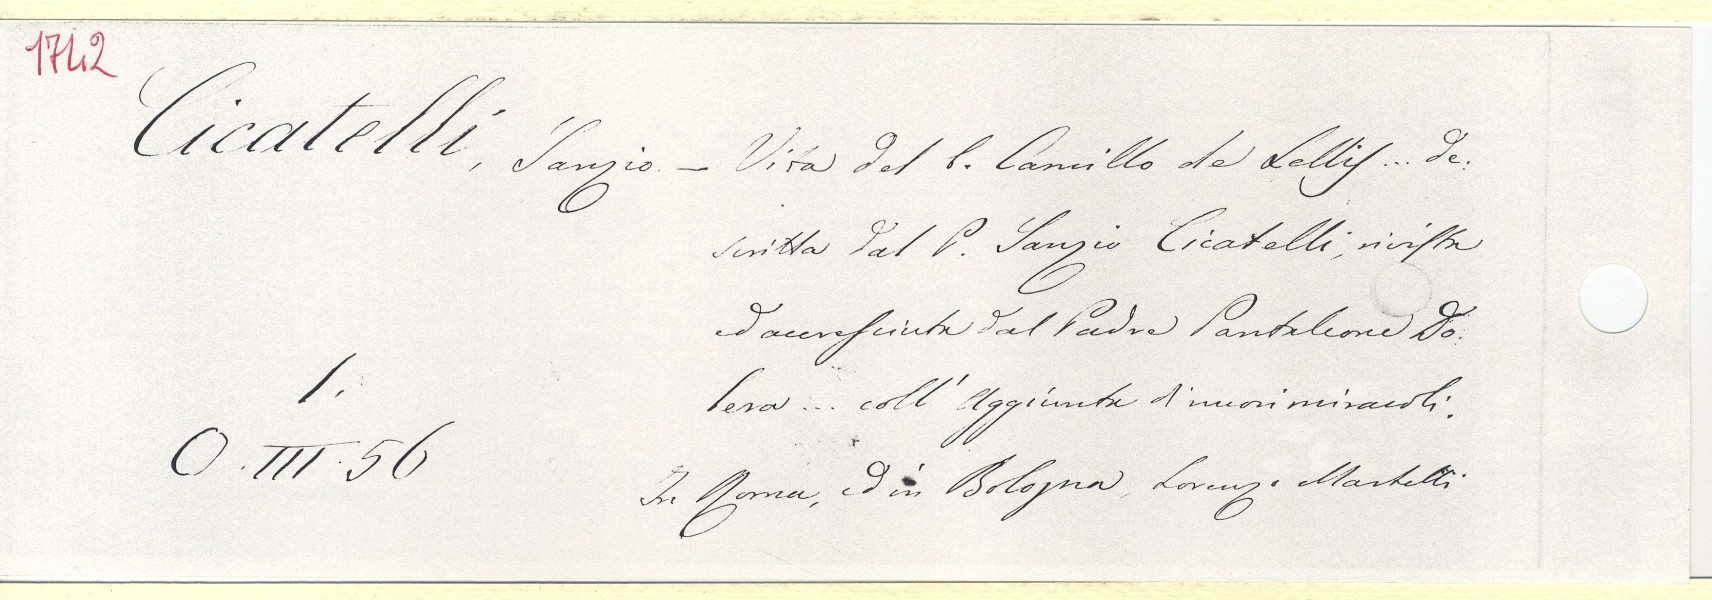 1742
Cicatelli, Sanzio. — Vita del b. Camillo de Lellis ... de:
scritta dal P. Sanzio Cicatelli, rivista
ed accresciuta dal Padre Pantaleone Do:
lera ... coll' Aggiunta di nuovi miracoli.
1.
O. III. 56
In Roma, ed in Bologna, Lorenzo Martelli